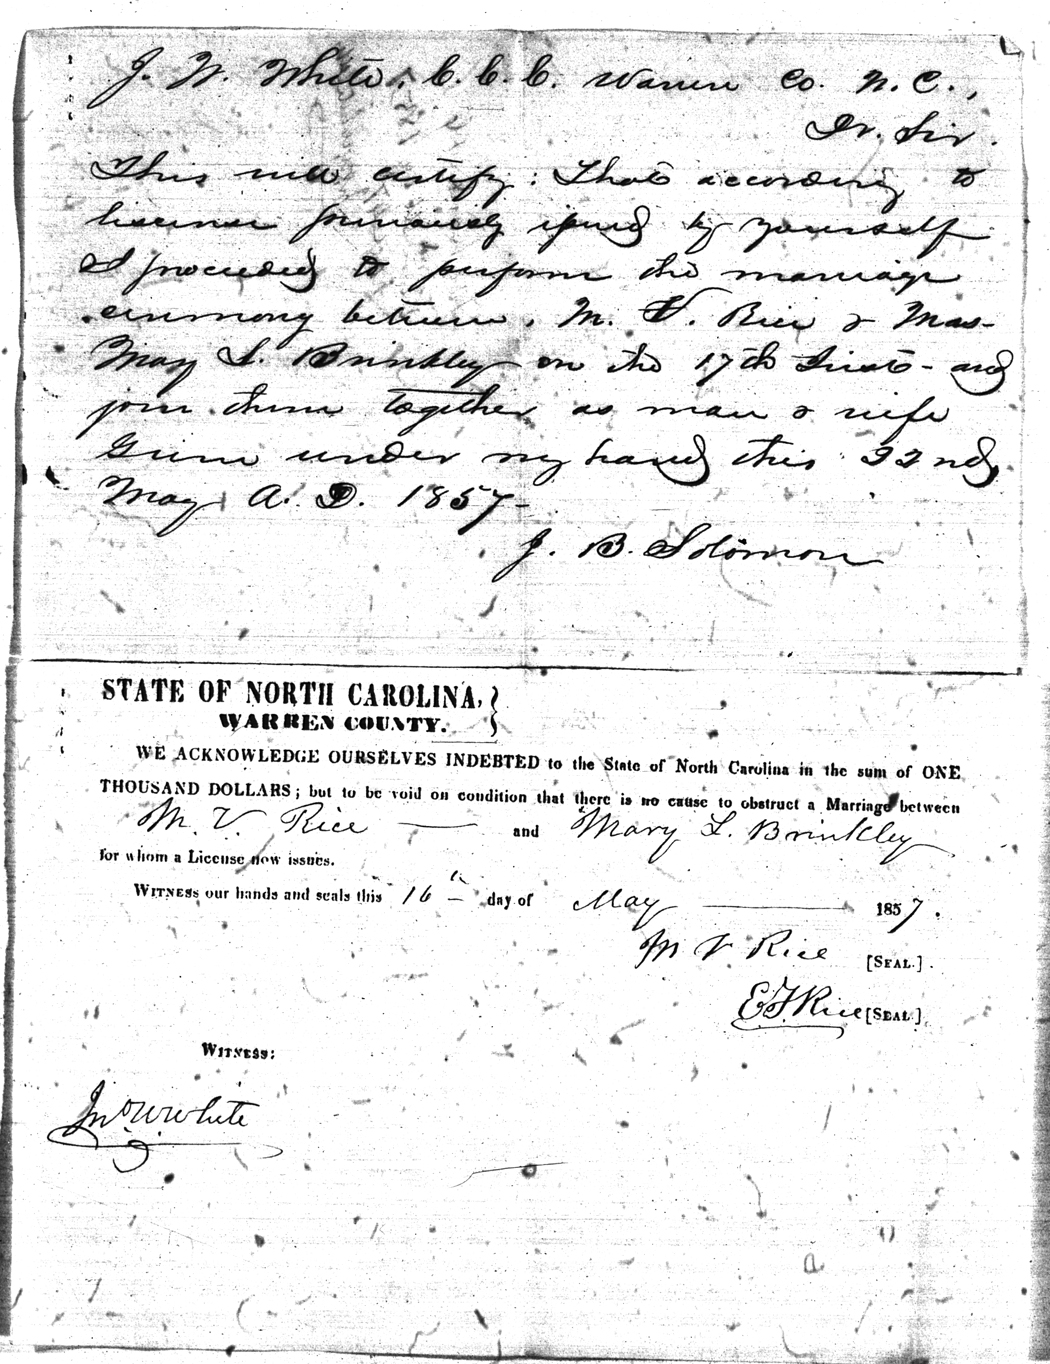 J. W. White, C. C. C. Warren Co. N. C.,
Dr. Sir.
This will certify: That according to
license previously issued by yourself
I proceeded to perform the marriage
ceremony between, M. V. Rice &
May L. Brinkley on the 17th Inst - and
join them together as man & wife
Given under my hand this 22nd,
May A. D. 1857-
J. B. Solomon
STATE OF NORTH CAROLINA, }
WARREN COUNTY.
WE ACKNOWLEDGE OURSELVES INDEBTED to the State of North Carolina in the sum of ONE
THOUSAND DOLLARS; but to be void on condition that there is no cause to obstruct a Marriage between
M. V. Rice — and Mary L. Brinkley
for whom a License now issues.
WITNESS our hands and seals this 16th day of May — 1857.
M V Rice [SEAL.]
E F Rice [SEAL.]
WITNESS:
Jno W White